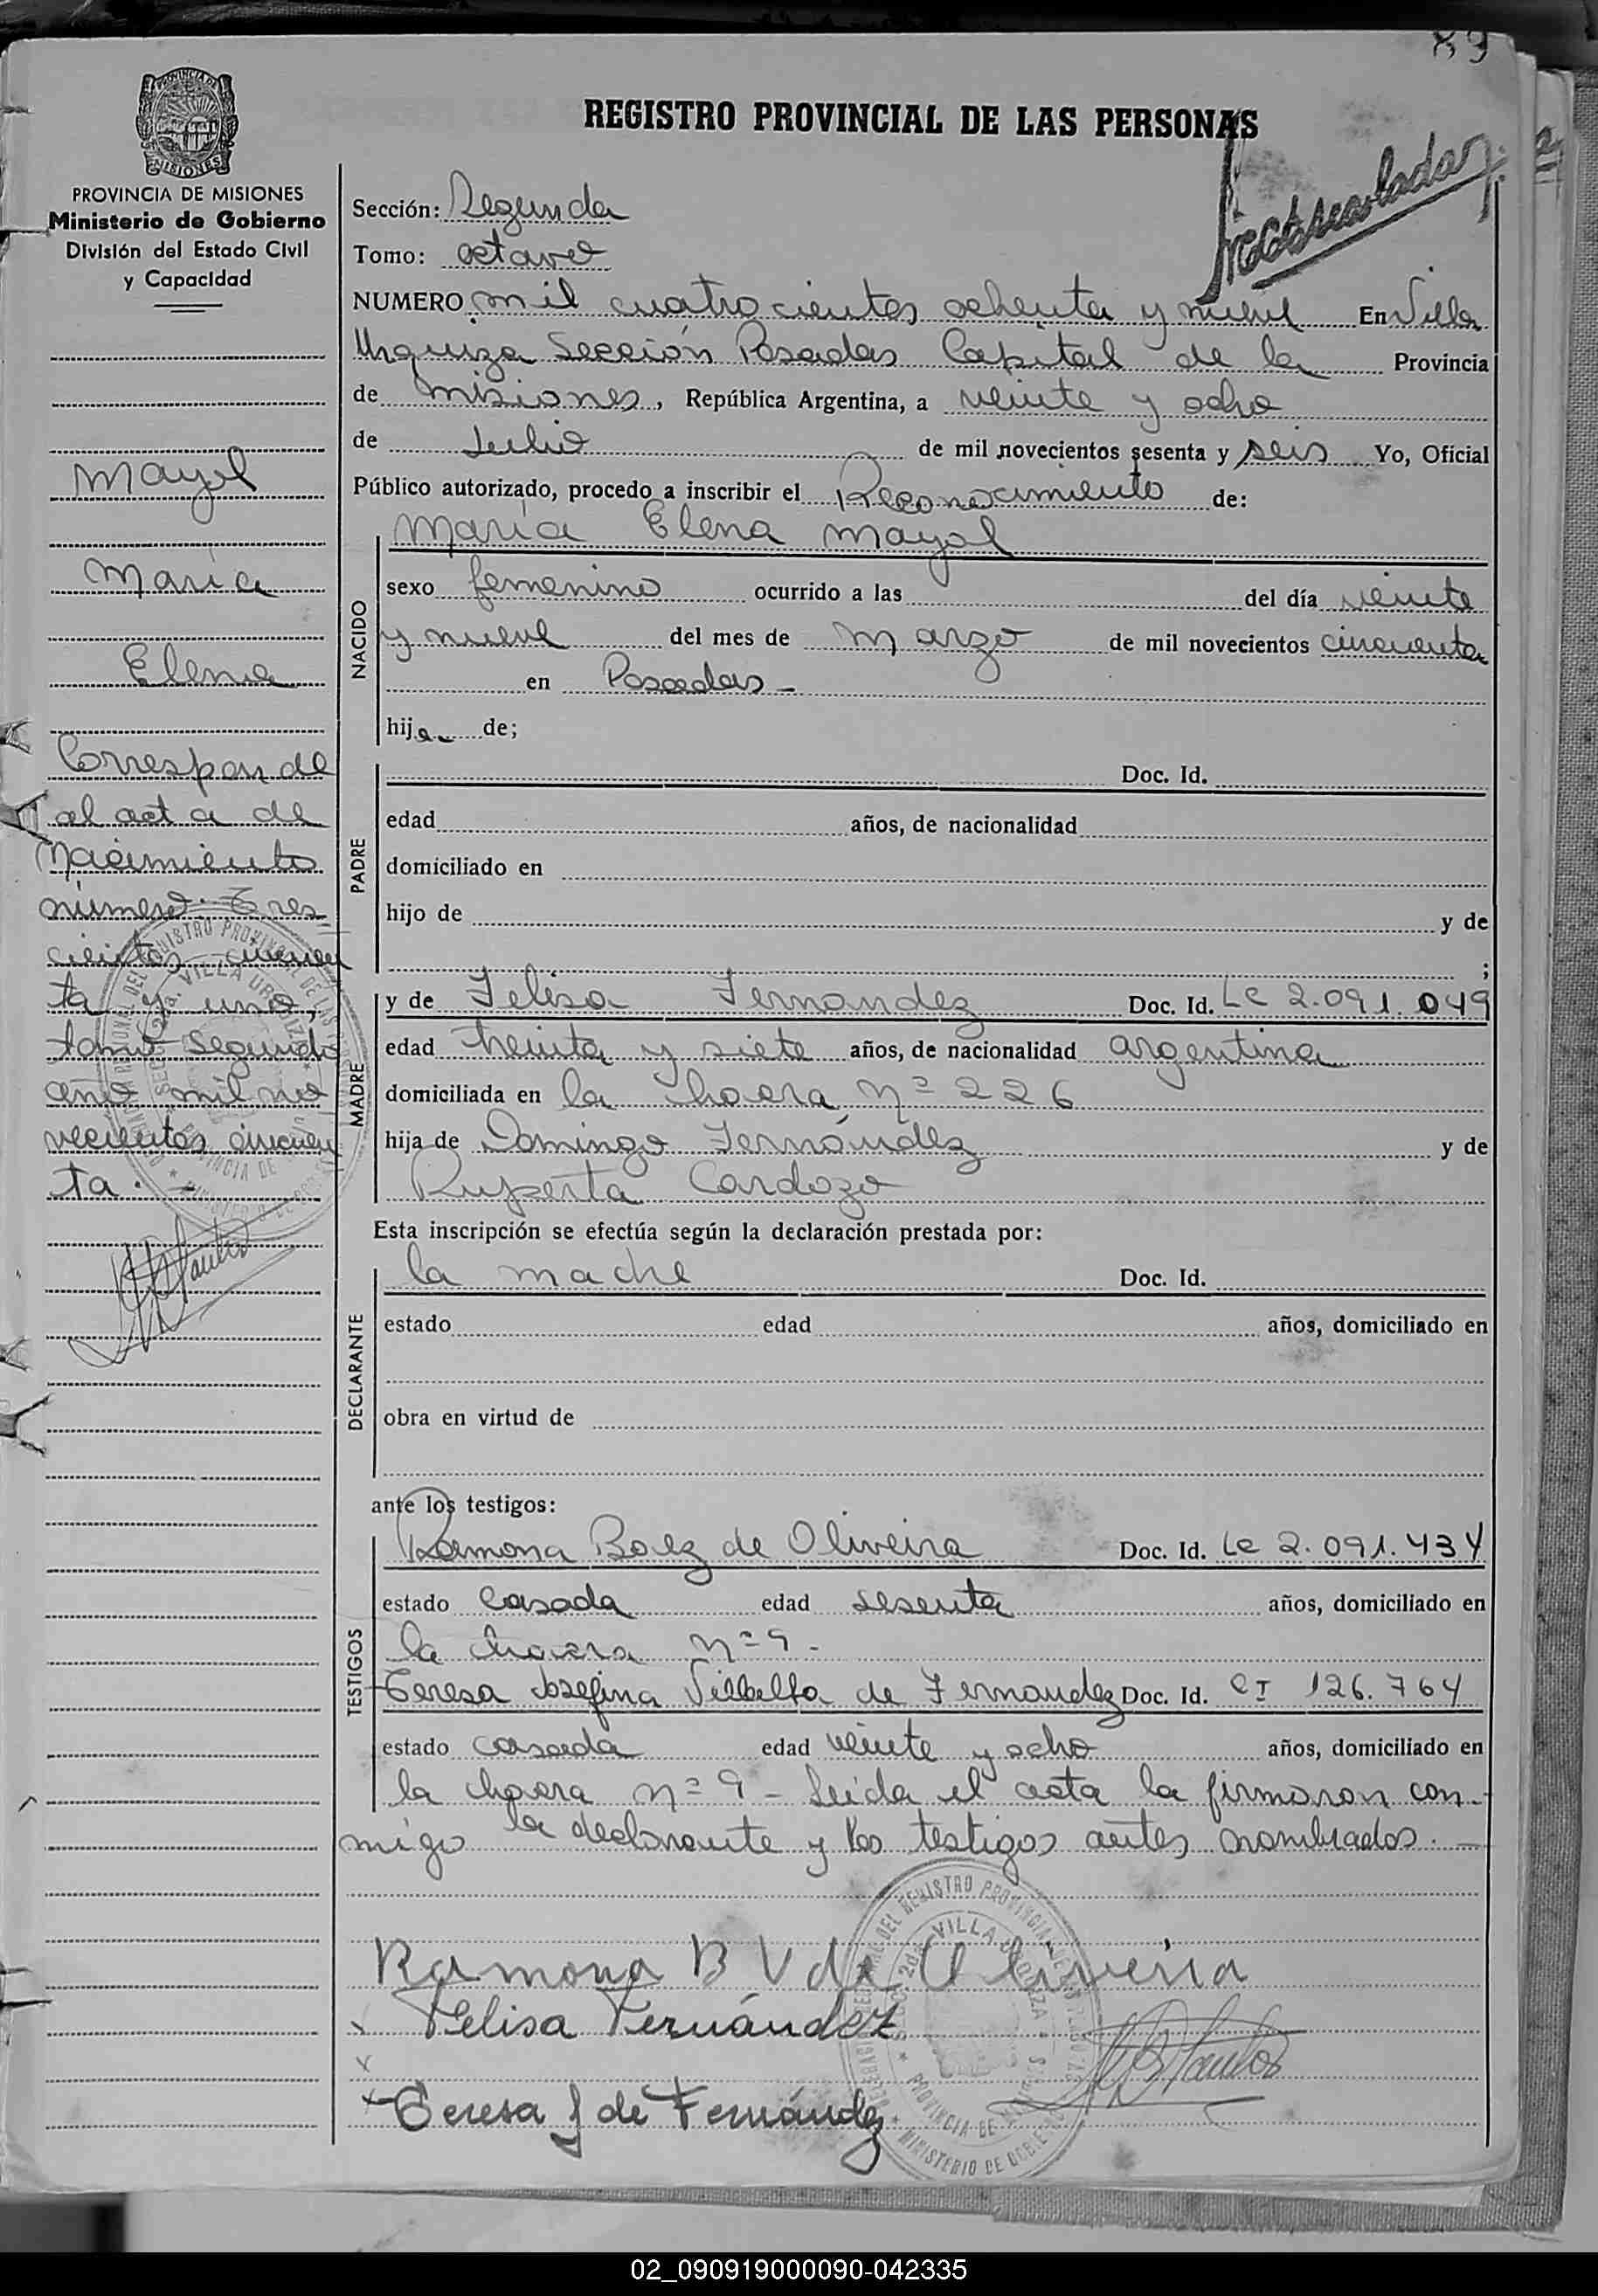 89
PROVINCIA DE MISIONES
MISIONES
PROVINCIA DE MISIONES
Ministerio de Gobierno
División del Estado Civil
y Capacidad
REGISTRO PROVINCIAL DE LAS PERSONAS
Sección: Segunda
Tomo: octavo
NUMERO mil cuatrocientos ochenta y nueve En Villa
Urquiza Sección Posadas Capital de la Provincia
de Misiones, República Argentina, a veinte y ocho
de Julio de mil novecientos sesenta y seis Yo, Oficial
Público autorizado, procedo a inscribir el Reconocimiento de:
Mayol
María
Elena
Corresponde
al acta de
Nacimiento
número Tres
cientos cincuen
ta y uno,
tomo segundo
año mil no
vecientos cincuen
ta.
NACIDO
María Elena Mayol
sexo femenino ocurrido a las del día veinte
y nueve del mes de Marzo de mil novecientos cincuenta
en Posadas -
hija de;
PADRE
Doc. Id.
edad años, de nacionalidad
domiciliado en
hijo de y de
;
MADRE
y de Felisa Fernandez Doc. Id. Lc 2.091.049
edad treinta y siete años, de nacionalidad argentina
domiciliada en la chacra nº 226
hija de Domingo Fernández y de
Ruperta Cardozo
Esta inscripción se efectúa según la declaración prestada por:
DECLARANTE
la madre Doc. Id.
estado edad años, domiciliado en
obra en virtud de
ante los testigos:
TESTIGOS
Ramona Baez de Oliveira Doc. Id. Lc 2.091.434
estado Casada edad sesenta años, domiciliado en
la chacra nº 9 -
Teresa Josefina Villalta de Fernandez Doc. Id. CI 126.764
estado casada edad veinte y ocho años, domiciliado en
la chacra nº 9 - Leída el acta la firmaron con-
migo la declarante y los testigos antes nombrados. -
Ramona B V de Oliveira
Felisa Fernández
Teresa J de Fernández
02_090919000090-042335